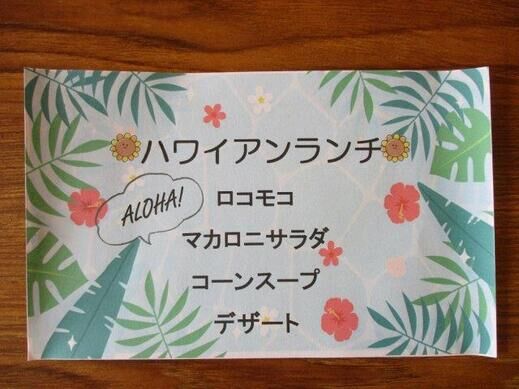 ハワイアンランチ
ALOHA!
ロコモコ
マカロニサラダ
コーンスープ
デザート